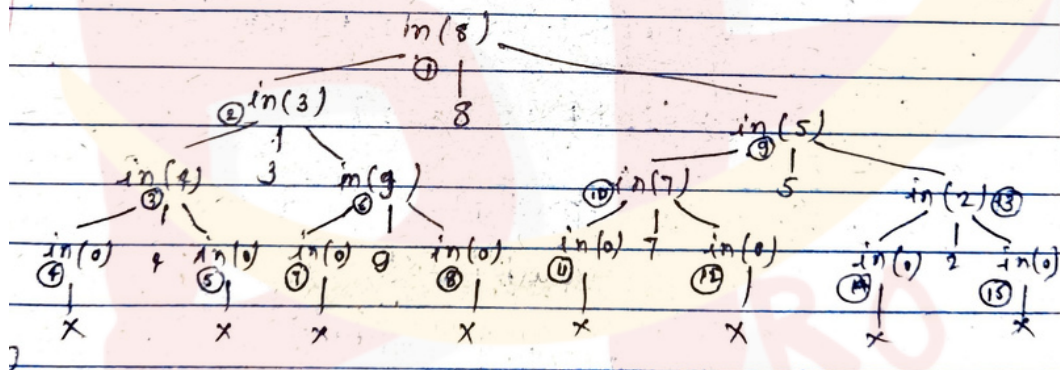 in(8)
① 8
② in(3)
in(5)
⑨
in(4) 3 in(9) ⑩ in(7) 5 in(2) ⑬
③ ⑥
in(0) 4 in(0) in(0) 9 in(0) in(0) 7 in(0) in(0) 2 in(0)
④ ⑤ ⑦ ⑧ ⑪ ⑫ ⑭ ⑮
x x x x x x x x
RO